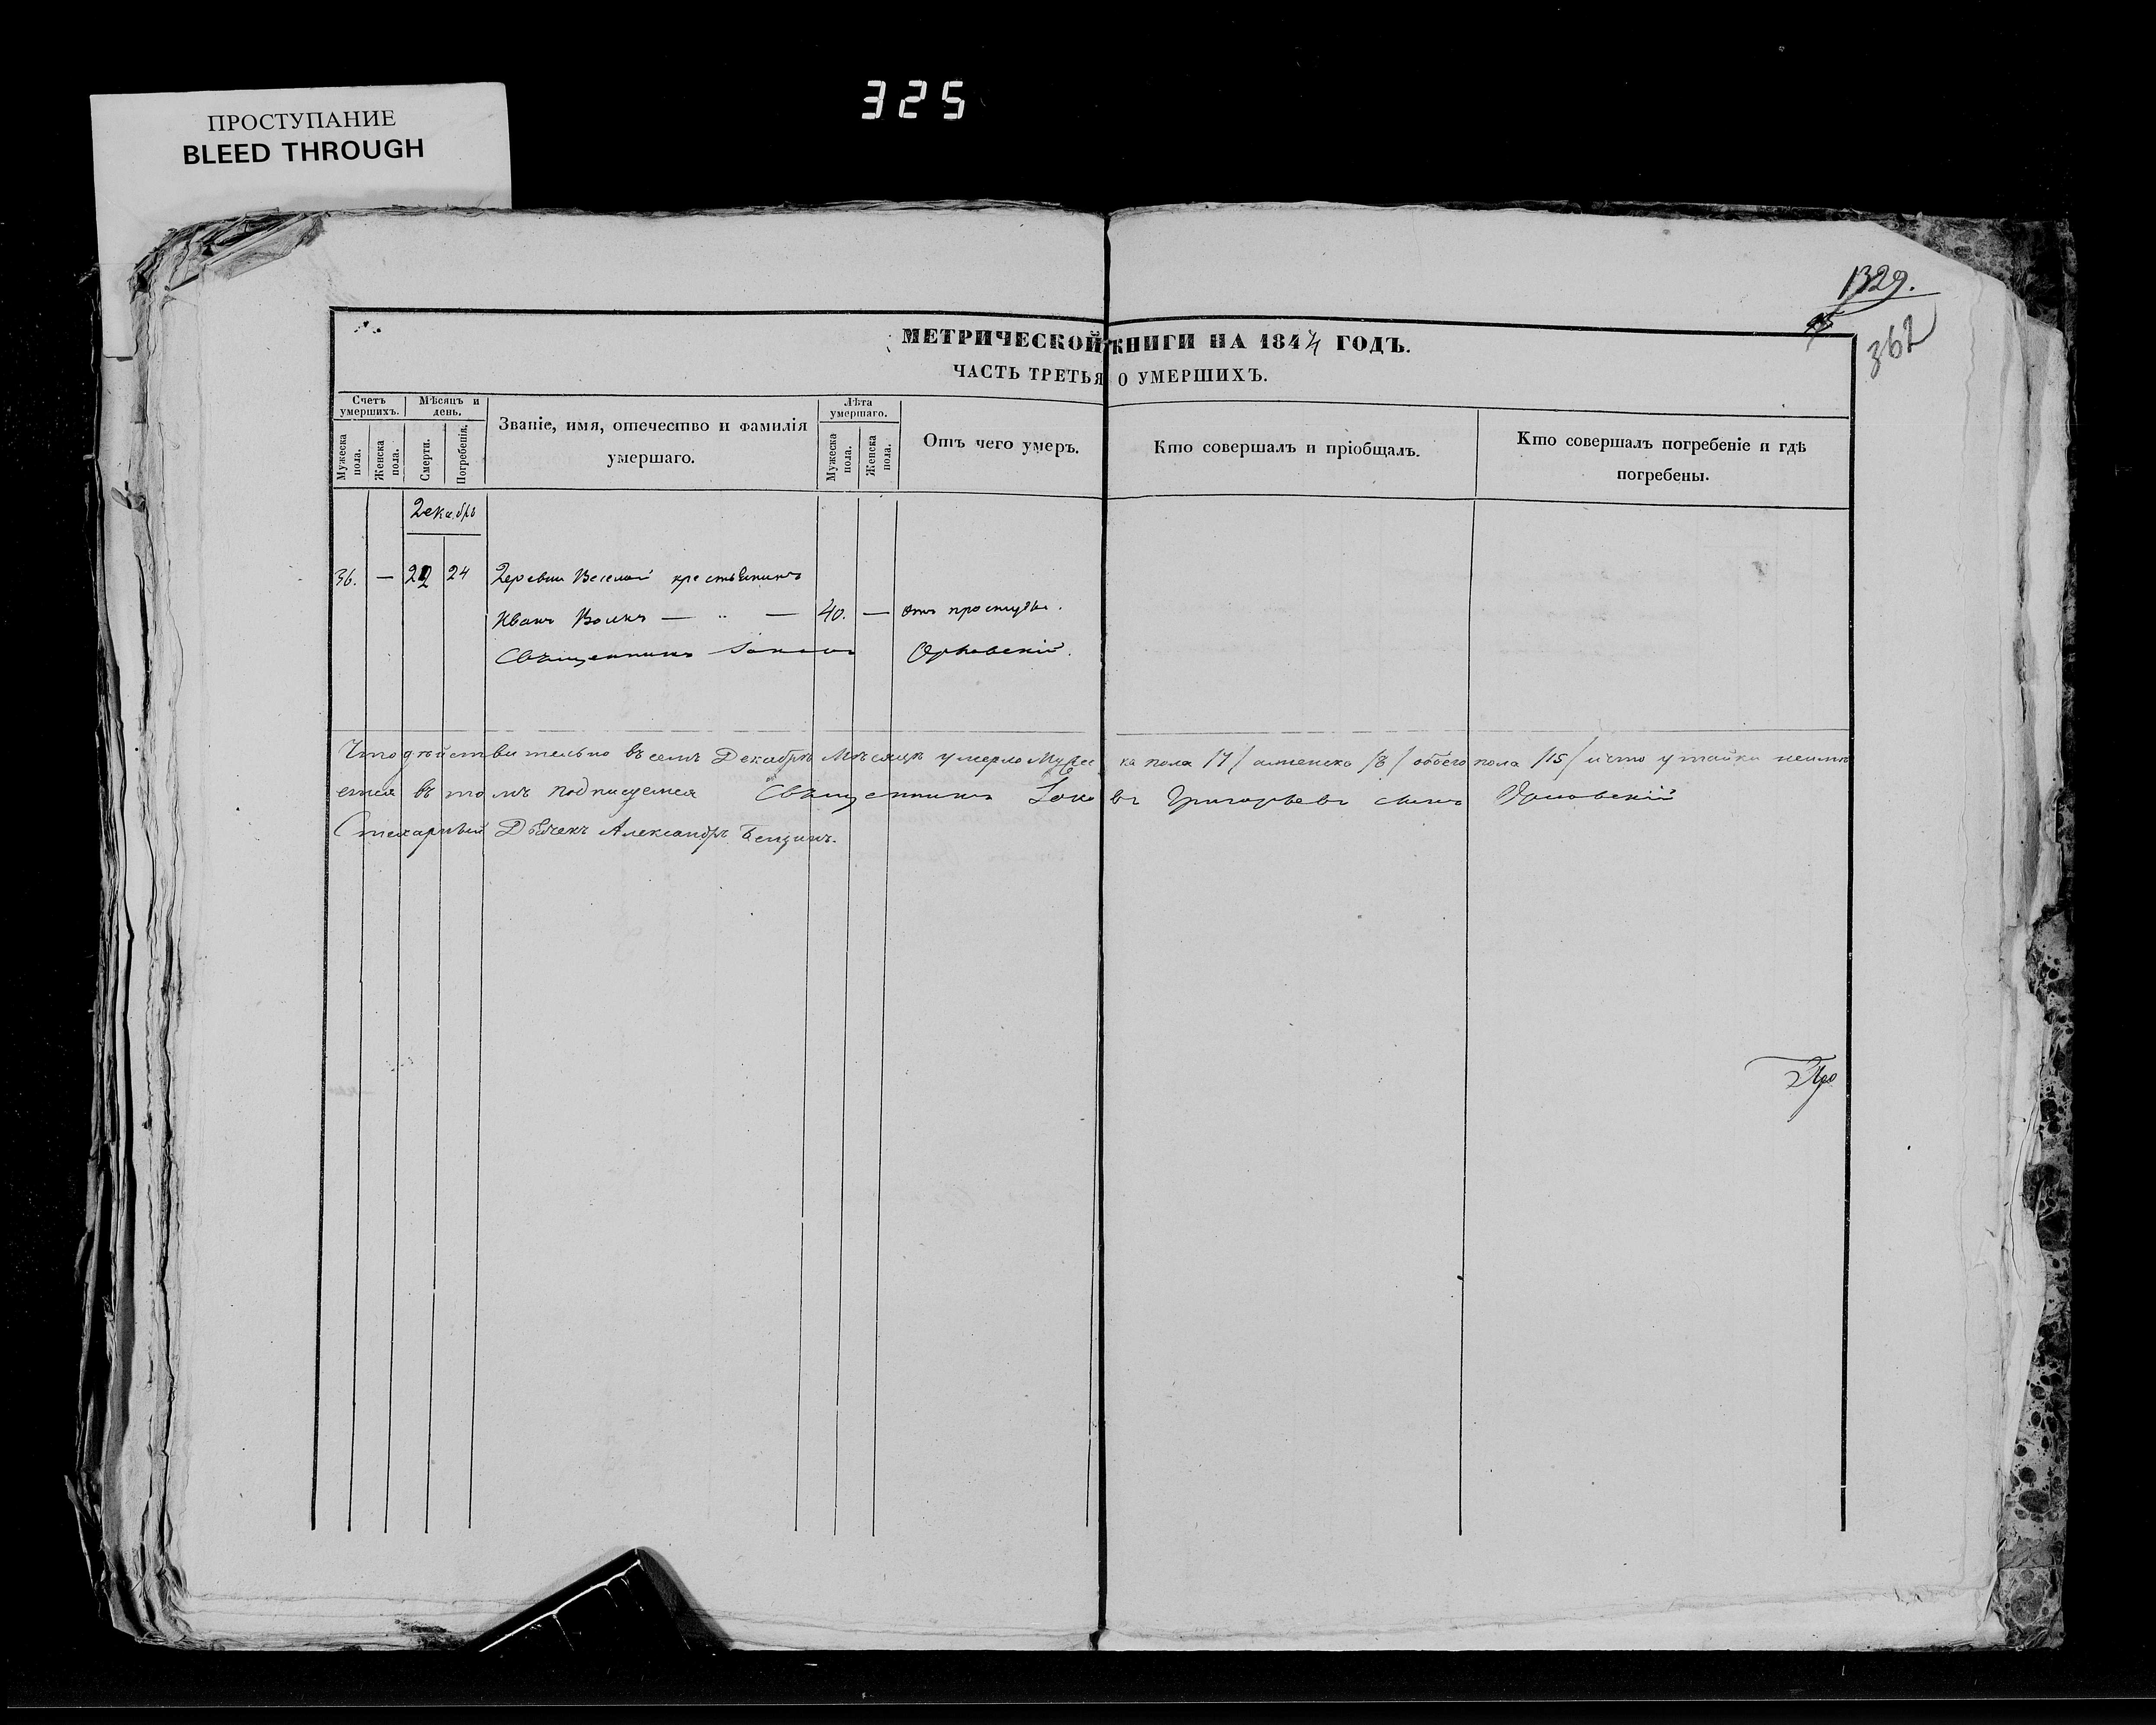 325
ПРОСТУПАНИЕ
BLEED THROUGH
1329.
362
МЕТРИЧЕСКОЙ КНИГИ НА 1844 ГОДЪ.
ЧАСТЬ ТРЕТЬЯ О УМЕРШИХЪ.
Счетъ умершихъ.
Мѣсяцъ и день.
Званіе, имя, отечество и фамилія умершаго.
Лѣта умершаго.
Отъ чего умеръ.
Кто совершалъ и пріобщалъ.
Кто совершалъ погребеніе и гдѣ погребены.
Мужеска пола.
Женска пола.
Смерти.
Погребенія.
Мужеска пола.
Женска пола.
Декабрь
36. — 22 24 Деревни Веселой крестьянинъ
Иванъ Волкъ — „ — 40. — отъ простуды.
Священникъ Орловскій.
Что действительно въ семъ Декабрѣ Мѣсяцѣ умерло Мужеска пола /7/ аженска /8/ обоего пола /15/ ичто утайки неимѣ
ется въ томъ подписуемся Священникъ Григорьевъ сынъ Орловскій
Дьячекъ Александръ